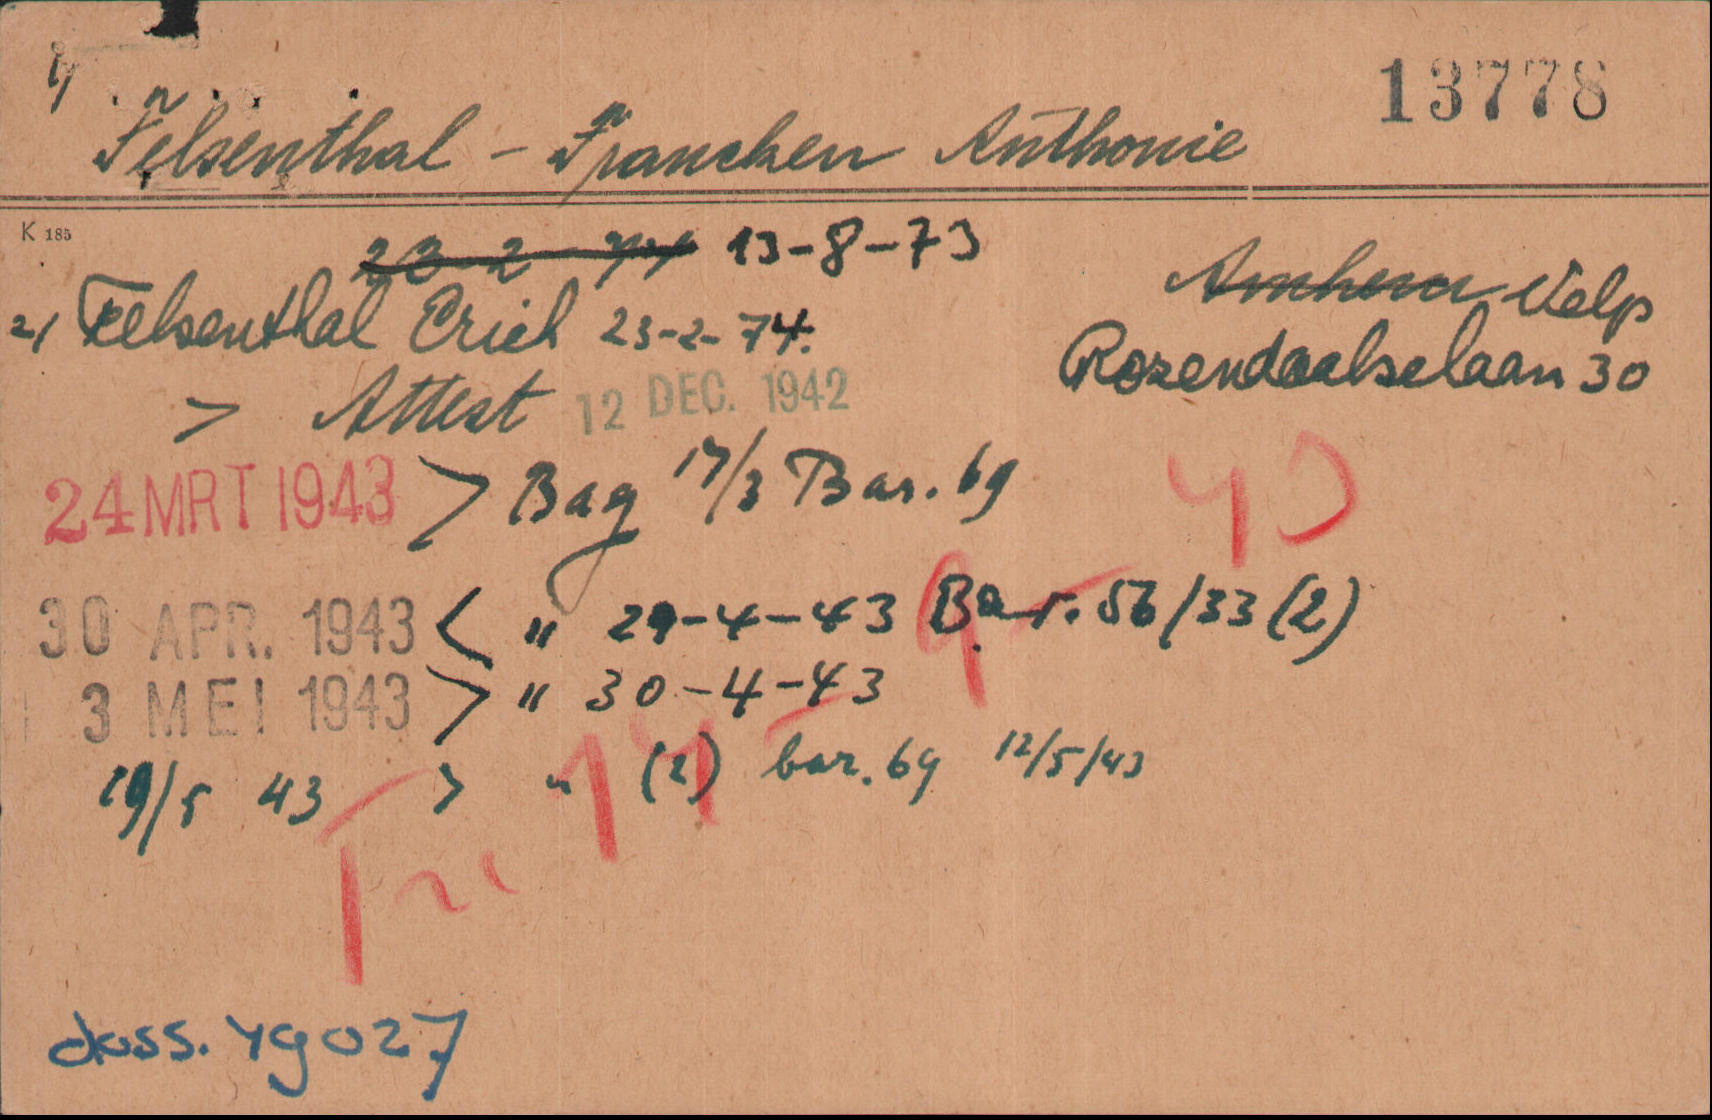 1/
13778
Felsenthal - Francken Anthonie
K 185
23-2-74 13-8-73
Arnhem Velp
2/ Felsenthal Erich 23-2-74.
Rozendaalselaan 30
> Attest 12 DEC. 1942
24 MRT 1943 > Bag 17/3 Bar. 69
40
30 APR. 1943 < " 29-4-43 Bar. 56/33 (2)
3 MEI 1943 > " 30-4-43
19/5 43 > " (2) bar. 69 12/5/43
doss. 49027